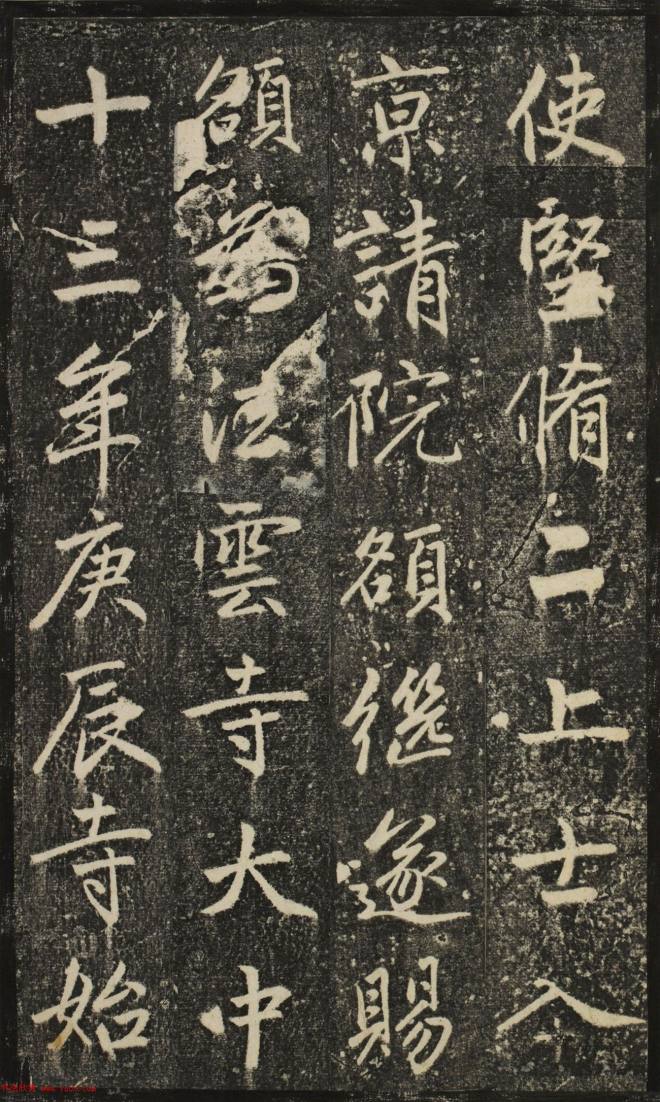 使堅脩二上士入
京請院額繼遂賜
額為法雲寺大中
十三年庚辰寺始